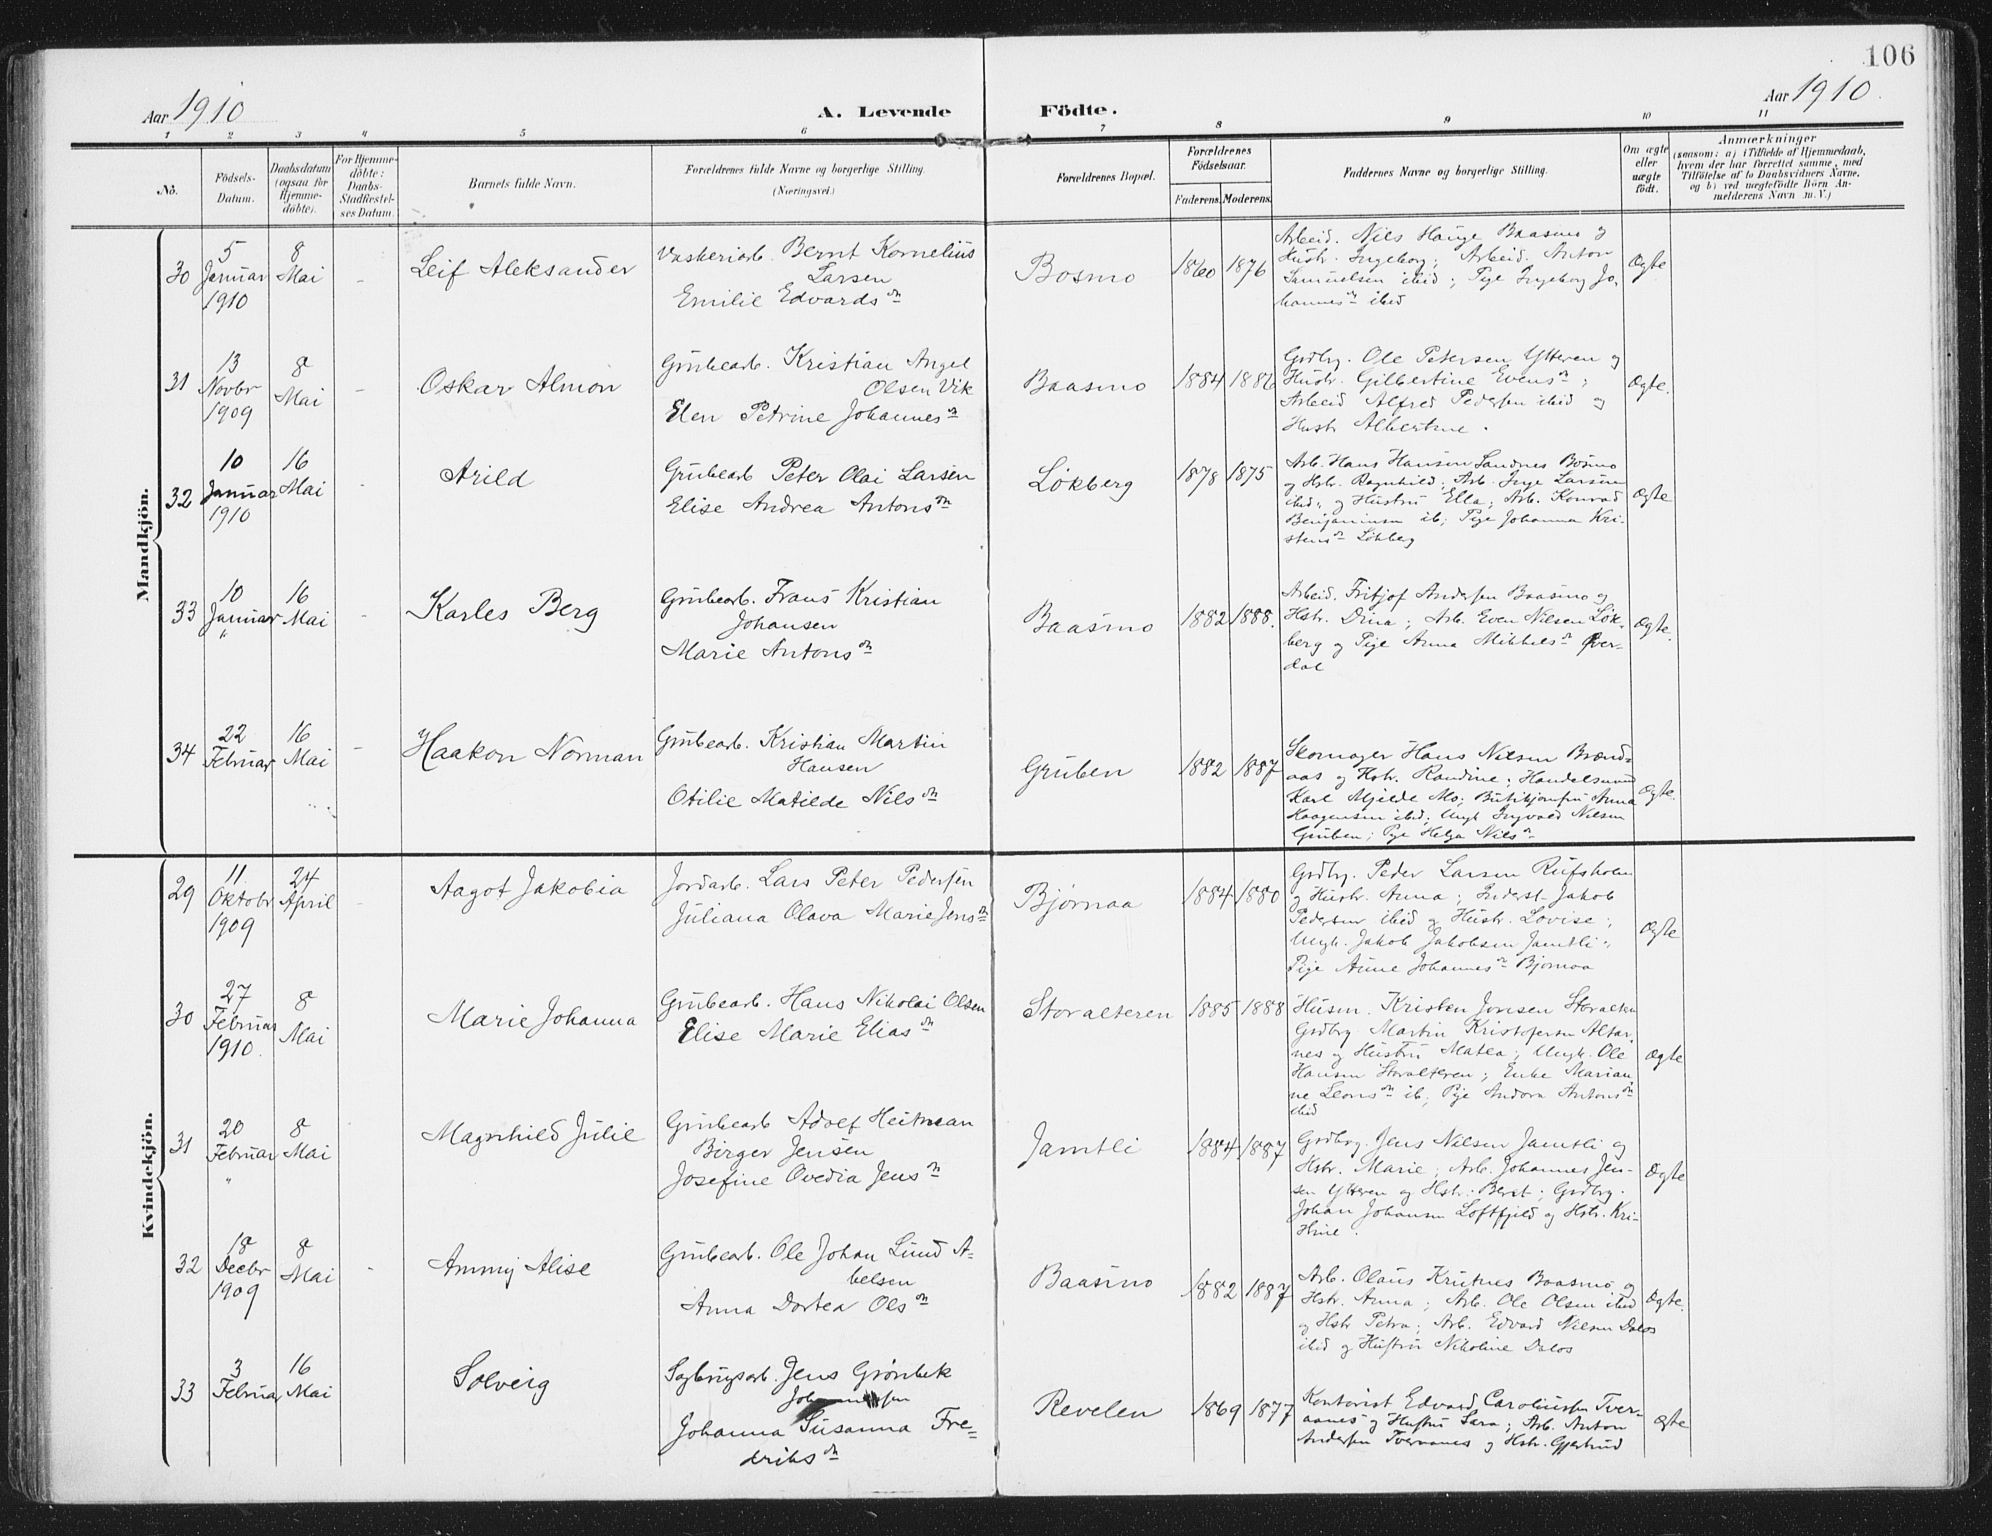 106
Aar 1910
A. Levende Födte.
Aar 1910.
1 2 3 4 5 6 7 8 9 10 11
No.
Födsels-Datum.
Daabsdatum (ogsaa for Hjemme-döbte).
For Hjemme-döbte: Daabs-Stadfæstel-ses Datum.
Barnets fulde Navn.
Forældrenes fulde Navne og borgerlige Stilling.
(Næringsvei.)
Forældrenes Bopæl.
Forældrenes Födselsaar.
Faderens. Moderens.
Faddernes Navne og borgerlige Stilling.
Om ægte eller uægte födt.
Anmærkninger
(saasom: a) i Tilfælde af Hjemmedaab,
hvem der har forrettet samme, med
Tilföielse af to Daabsvidners Navne,
og b) ved uægtefödte Börn An-
melderens Navn m. V.)
Mandkjön.
30
5 Januar 1910
8 Mai
-
Leif Aleksander
Vaskeriarb. Bernt Kornelius
Larsen
Emilie Edvardsdn
Bosmo
1860 1876
Arbeid. Nils Hauge Baasmo og
Hustr. Ingeborg; Arbeid. Anton
Samuelsen ibid; Pige Ingeborg Jo-
hannesdn ibid
Ægte
31
13 Novbr 1909
8 Mai
-
Oskar Almon
Grubearb. Kristian Angel
Olsen Vik
Elen Petrine Johannesdn
Baasmo
1884 1886
Grdbrg. Ole Petersen Ytteren og
Hustr. Gilbertine Evensdn;
Arbeid Alfred Pedersen ibid og
Hustr Albertine.
Ægte.
32
10 Januar 1910
16 Mai
-
Arild
Grubearb Peter Olai Larsen
Elise Andrea Antonsdn
Løkberg
1878 1875
Arb. Hans Hansen Sandnes Bosmo
og Hstr. Ragnhild; Arb. Inge Larsen
ibid; og Hustru Ella; Arb. Konrad
Benjaminsen ib; Pige Johanna Kri-
stensdn Løkberg
Ægte
33
10 Januar "
16 Mai
-
Karles Berg
Grubearb. Frans Kristian
Johansen
Marie Antonsdn
Baasmo
1882 1888.
Arbeid. Fritjof Andersen Baasmo og
Hstr. Dina; Arb. Even Nilsen Løk-
berg og Pige Anna Mikkelsdn Øver-
dal
Ægte.
34
22 Februar
16 Mai
-
Haakon Norman
Grubearb. Kristian Martin
Hansen
Otilie Matilde Nilsdn
Gruben
1882 1887
Skomager Hans Nilsen Brænd-
aas og Hstr. Randine; Handelsmand
Karl Mjelde Mo; Butikjomfru Anna
Haagensen ibid; Ungk Ingvald Nilsen
Gruben; Pige Helga Nilsdn
Ægte.
Kvindekjön.
29
11 Oktobr 1909
24 April
-
Aagot Jakobia
Jordarb. Lars Peter Pedersen
Juliana Olava Marie Jensdn
Bjørnaa
1884 1880
Grdbrg. Peder Larsen Rufsholm
og Hustr. Anna; Inderst Jakob
Pedersen ibid og Hustr. Lovise;
Ungk. Jakob Jakobsen Jamtli;
Pige Anne Johannesdn Bjørnaa
Ægte
30
27 Februar 1910.
8 Mai
Marie Johanna
Grubearb. Hans Nikolai Olsen
Elise Marie Eliasdn
Storalteren
1885 1888
Husm. Kristen Jonsen Storalteren
Grdbrg Martin Kristofersen Altar-
nes og Hustru Matea; Ungk. Ole
Hansen Storalteren; Enke Marian-
ne Leonsdn ib, Pige Andora Antonsdn
ibid
Ægte
31
20 Februar "
8 Mai
Magnhild Julie
Grubearb Adolf Heitman
Birger Jensen
Josefine Ovedia Jensdn
Jamtli
1884 1887
Grdbrg. Jens Nilsen Jamtli og
Hstr. Marie; Arb. Johannes Jen-
sen Ytteren og Hstr. Berit; Grdbrg.
Johan Johansen Loftfjeld og Hstr. Kri-
stine.
Ægte
32
18 Decbr 1909
8 Mai
-
Ammy Alise
Grubearb. Ole Johan Lund A-
belsen
Anna Dortea Olsdn
Baasmo
1882 1887
Arb. Olaus Krutnes Baasmo og
Hstr. Anna; Arb. Ole Olsen ibid
og Hstr Petra; Arb. Edvard Nilsen Dalos
ibid og Hustru Nikoline Dalos
Ægte.
33
3 Februar
16 Mai
Solveig
Sagbrugsarb. Jens Grønbek
Johannessen
Johanna Susanna Fre-
driksdn
Revelen
1869 1877
Kontorist Edvard Caroliussen Tver-
aanes og Hustru Sara; Arb. Anton
Andersen Tveraanes og Hstr. Gjertrud
Ægte